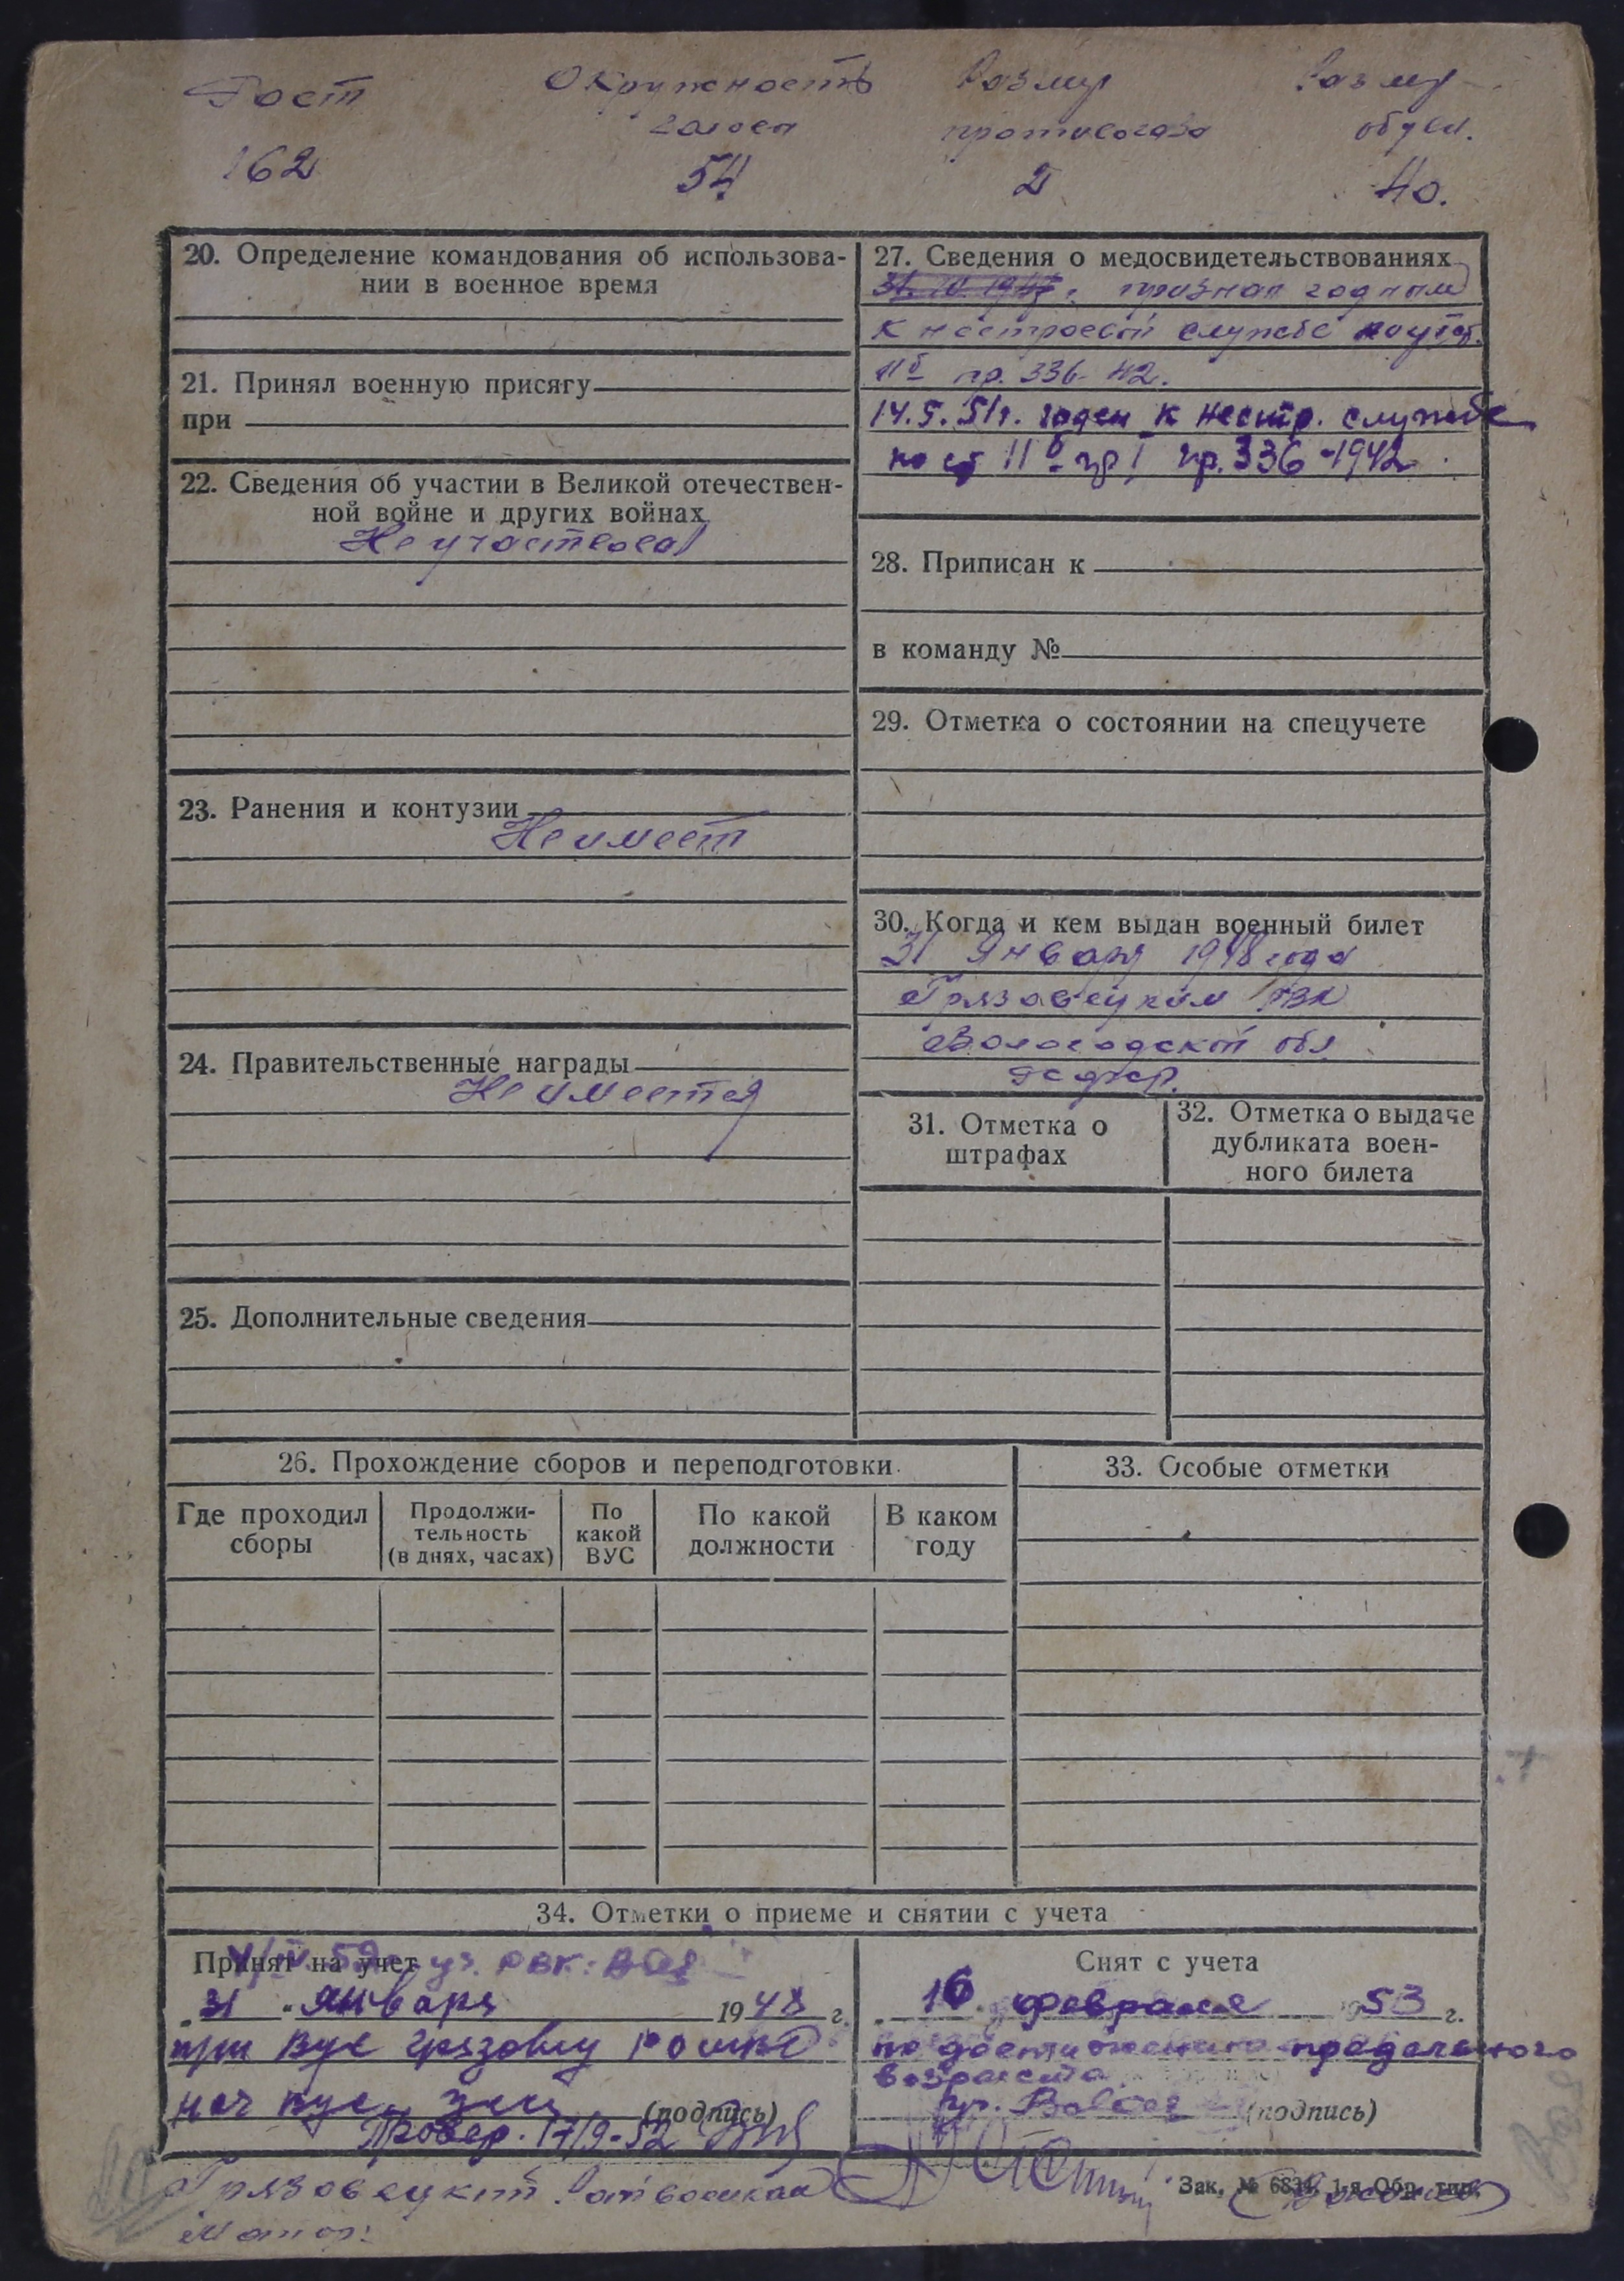 Рост Окружность Размер Размер
головы противогаза обуви.
162 54 2 40.
20. Определение командования об использова-
нии в военное время
21. Принял военную присягу
при
22. Сведения об участии в Великой отечествен-
ной войне и других войнах
Не участвовал
23. Ранения и контузии
Не имеет
24. Правительственные награды
Не имеется
25. Дополнительные сведения
27. Сведения о медосвидетельствованиях
признан годным
к нестроевой службе по
11б пр. 336-42.
14.5.51г. годен к нестр. службе
по ст 11б гр I пр. 336-1942
28. Приписан к
в команду №
29. Отметка о состоянии на спецучете
30. Когда и кем выдан военный билет
31 Января 1948 года
Грязовецким РВК
Вологодской обл
31. Отметка о
штрафах
32. Отметка о выдаче
дубликата воен-
ного билета
26. Прохождение сборов и переподготовки
Где проходил
сборы
Продолжи-
тельность
(в днях, часах)
По
какой
ВУС
По какой
должности
В каком
году
33. Особые отметки
34. Отметки о приеме и снятии с учета
Принят на учет
31 Января 1948 г.
при Вус
нач (подпись)
Провер. 17/9-52
Снят с учета
16 февраля 1953 г.
по достижении предельного
возраста
(подпись)
Грязовецкий
Зак. № 6834. 1-я Обр. тип.